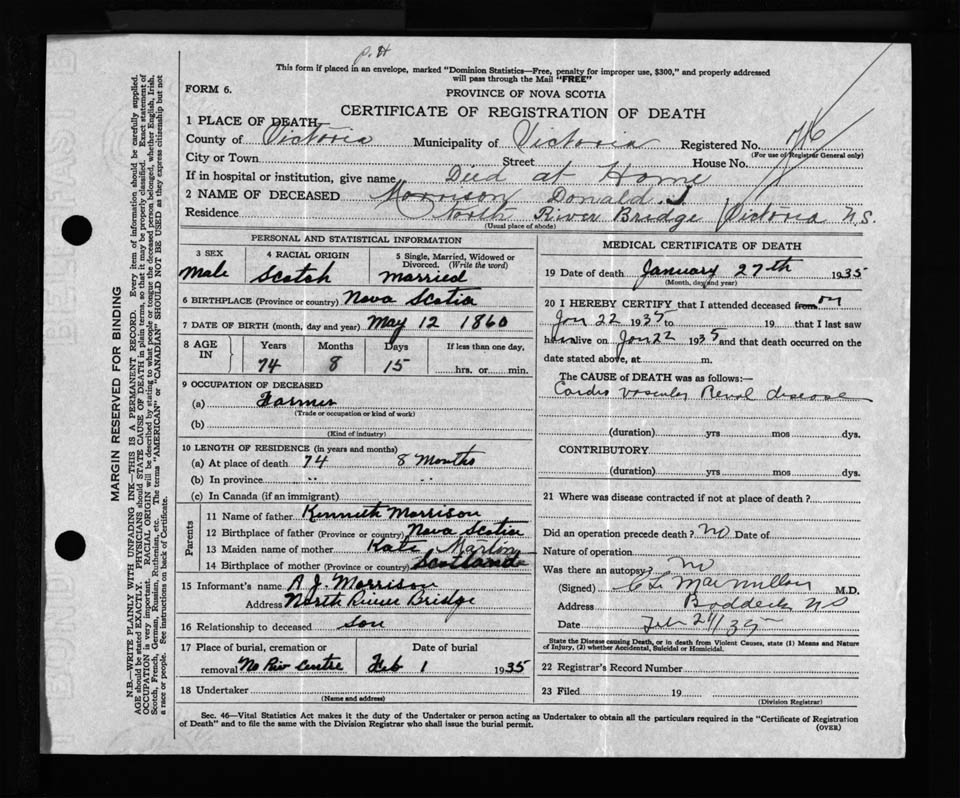 P.H
This form if placed in an envelope, marked "Dominion Statistics—Free, penalty for improper use, $300," and properly addressed
will pass through the Mail "FREE"
FORM 6.
PROVINCE OF NOVA SCOTIA
CERTIFICATE OF REGISTRATION OF DEATH
1 PLACE OF DEATH
County of Victoria Municipality of Victoria Registered No.
(For use of Registrar General only)
City or Town Street House No.
If in hospital or institution, give name Died at Home
2 NAME OF DECEASED Morrison Donald J.
Residence North River Bridge Victoria N.S.
(Usual place of abode)
PERSONAL AND STATISTICAL INFORMATION
3 SEX 4 RACIAL ORIGIN 5 Single, Married, Widowed or
Divorced. (Write the word)
Male Scotch Married
6 BIRTHPLACE (Province or country) Nova Scotia
7 DATE OF BIRTH (month, day and year) May 12 1860
8 AGE IN Years Months Days If less than one day,
74 8 15 hrs. or min.
9 OCCUPATION OF DECEASED
(a) Farmer
(Trade or occupation or kind of work)
(b)
(Kind of industry)
10 LENGTH OF RESIDENCE (in years and months)
(a) At place of death 74 8 Months
(b) In province " "
(c) In Canada (if an immigrant)
Parents
11 Name of father Kenneth Morrison
12 Birthplace of father (Province or country) Nova Scotia
13 Maiden name of mother Kate
14 Birthplace of mother (Province or country) Scotland
15 Informant's name A. J. Morrison
Address North River Bridge
16 Relationship to deceased Son
17 Place of burial, cremation or Date of burial
removal No Riv Centre Feb 1 1935
18 Undertaker
(Name and address)
MEDICAL CERTIFICATE OF DEATH
19 Date of death January 27th 1935
(Month, day and year)
20 I HEREBY CERTIFY that I attended deceased from on
Jan 22 1935 to 19 that I last saw
h alive on Jan 22 1935 and that death occurred on the
date stated above, at m.
The CAUSE of DEATH was as follows:—
Cardio vascular Renal disease
(duration) yrs mos dys.
CONTRIBUTORY
(duration) yrs mos dys.
21 Where was disease contracted if not at place of death?
Did an operation precede death? No Date of
Nature of operation
Was there an autopsy? No
(Signed) C L MacMillan M.D.
Address Baddeck NS
Date Feb
State the Disease causing Death, or in death from Violent Causes, state (1) Means and Nature
of Injury, (2) whether Accidental, Suicidal or Homicidal.
22 Registrar's Record Number
23 Filed 19
(Division Registrar)
Sec. 46—Vital Statistics Act makes it the duty of the Undertaker or person acting as Undertaker to obtain all the particulars required in the "Certificate of Registration
of Death" and to file the same with the Division Registrar who shall issue the burial permit.
(OVER)
MARGIN RESERVED FOR BINDING
N.B.—WRITE PLAINLY WITH UNFADING INK—THIS IS A PERMANENT RECORD. Every item of information should be carefully supplied.
AGE should be stated EXACTLY. PHYSICIANS should STATE CAUSE OF DEATH in plain terms, so that it may be properly classified. Exact statement of
OCCUPATION is very important. RACIAL ORIGIN will be described by stating to what people or tongue the deceased person belonged, whether English, Irish,
Scotch, French, German, Russian, Ruthenian, etc. The terms "AMERICAN" or "CANADIAN" SHOULD NOT BE USED as they express citizenship but not
a race or people. See instructions on back of Certificate.